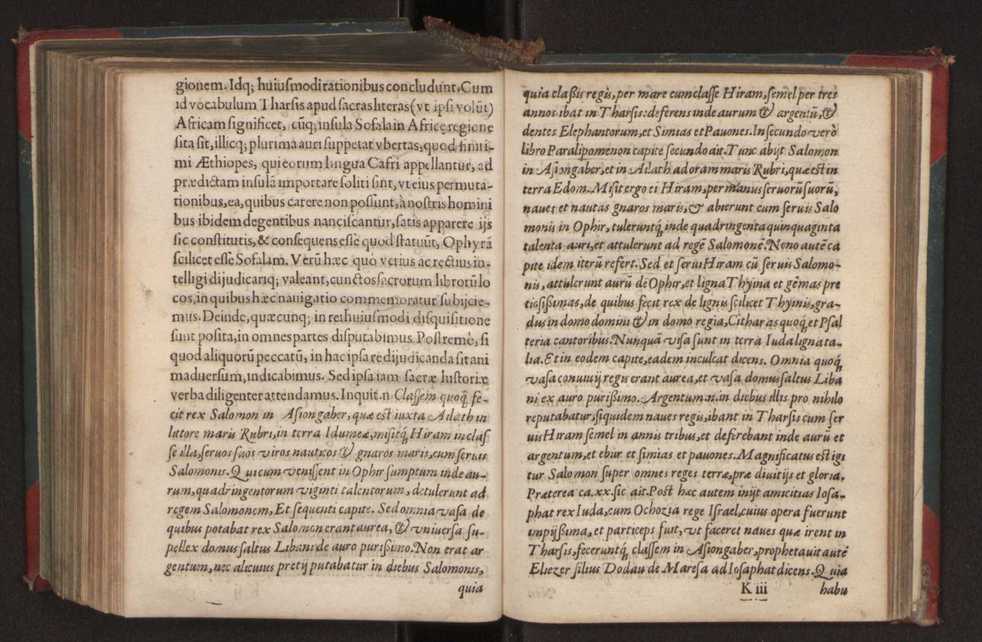 gionem. Idq; huiusmodi rationibus concludunt. Cum
id vocabulum Tharsis apud sacras literas (vt ipsi volūt)
Africam significet, cūq; insula Sofala in Africę regione
sita sit, illicq; plurima auri suppetat vbertas, quod finiti-
mi Æthiopes, qui eorum lingua Cafri appellantur, ad
prædictam insulā importare soliti sint, vt eius permuta-
tionibus, ea, quibus carere non possunt, à nostris homini
bus ibidem degentibus nanciscantur, satis apparere ijs
sic constitutis, & consequens esse quod statuūt, Ophyrā
scilicet esse Sofalam. Verū hæc quo verius ac rectius in-
telligi dijudicariq; valeant, cunctos sacrorum librorū lo
cos, in quibus hæc nauigatio commemoratur subijcie-
mus. Deinde, quæcunq; in rei huiusmodi disquisitione
sunt posita, in omnes partes disputabimus. Postremò, si
quod aliquorū peccatū, in hac ipsa re dijudicanda sit ani
maduersum, indicabimus. Sed ipsa iam sacræ historiæ
verba diligenter attendamus. Inquit.n. Classem quoq; fe-
cit rex Salomon in Asiongaber, quæ est iuxta Ailath in
littore maris Rubri, in terra Idumeæ, misitq; Hiram in clas
se illa, seruos suos viros nauticos & gnaros maris, cum seruis
Salomonis. Qui cum venissent in Ophir sumptum inde au-
rum, quadringentorum viginti talentorum, detulerunt ad
regem Salomonem, Et sequenti capite. Sed omnia vasa de
quibus potabat rex Salomon erant aurea, & vniuersa su-
pellex domus saltus Libani de auro purissimo. Non erat ar
gentum, nec alicuius pretij putabatur in diebus Salomonis,
quia
quia classis regis, per mare cum classe Hiram, semel per tres
annos ibat in Tharsis: deferens inde aurum & argentū, &
dentes Elephantorum, et Simias et Pauones. In secundo verò
libro Paralipomenon capite secundo ait. Tunc abijt Salomon
in Asiongaber, et in Ailath ad oram maris Rubri, quæ est in
terra Edom. Misit ergo ei Hiram, per manus seruorū suorū,
naues et nautas gnaros maris, & abierunt cum seruis Salo
monis in Ophir, tuleruntq; inde quadringenta quinquaginta
talenta auri, et attulerunt ad regē Salomonē. Nono autē ca
pite idem iterū refert. Sed et serui Hiram cū seruis Salomo-
nis, attulerunt aurū de Ophir, et ligna Thyina et gēmas pre
tiosissimas, de quibus fecit rex de lignis scilicet Thyinis, gra-
dus in domo domini & in domo regia, Citharas quoq; et Psal
teria cantoribus. Nunquā visa sunt in terra Iuda ligna ta-
lia. Et in eodem capite, eadem inculcat dicens. Omnia quoq;
vasa conuiuij regis erant aurea, et vasa domus saltus Liba
ni ex auro purissimo. Argentum.n. in diebus illis pro nihilo
reputabatur, siquidem naues regis, ibant in Tharsis cum ser
uis Hiram semel in annis tribus, et deferebant inde aurū et
argentum, et ebur et simias et pauones. Magnificatus est igi
tur Salomon super omnes reges terræ, præ diuitijs et gloria.
Præterea ca.xx. sic ait. Post hæc autem inijt amicitias Iosa-
phat rex Iuda, cum Ochozia rege Israel, cuius opera fuerunt
impijssima, et particeps fuit, vt faceret naues quæ irent in
Tharsis, feceruntq; classem in Asiongaber, prophetauit autē
Eliezer filius Dodau de Maresa ad Iosaphat dicens. Quia
K iii habu